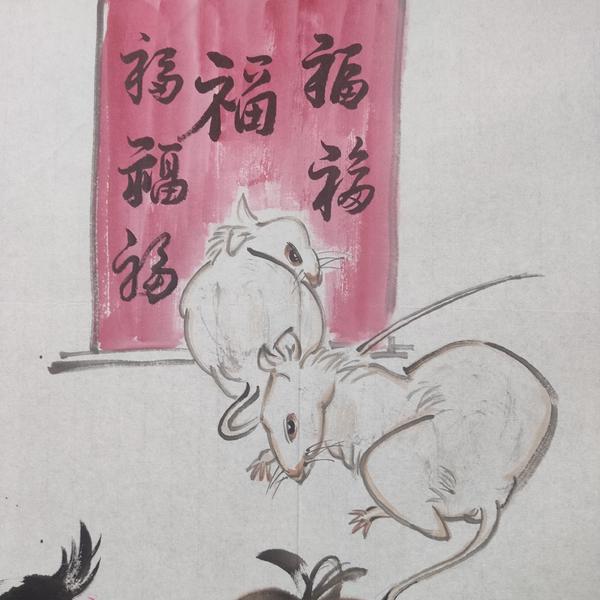 福福
福
福福福